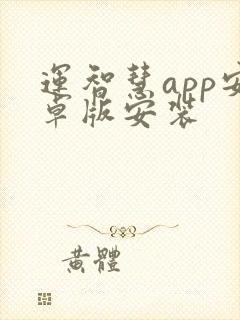 運智慧app安
卓版安裝
黃體